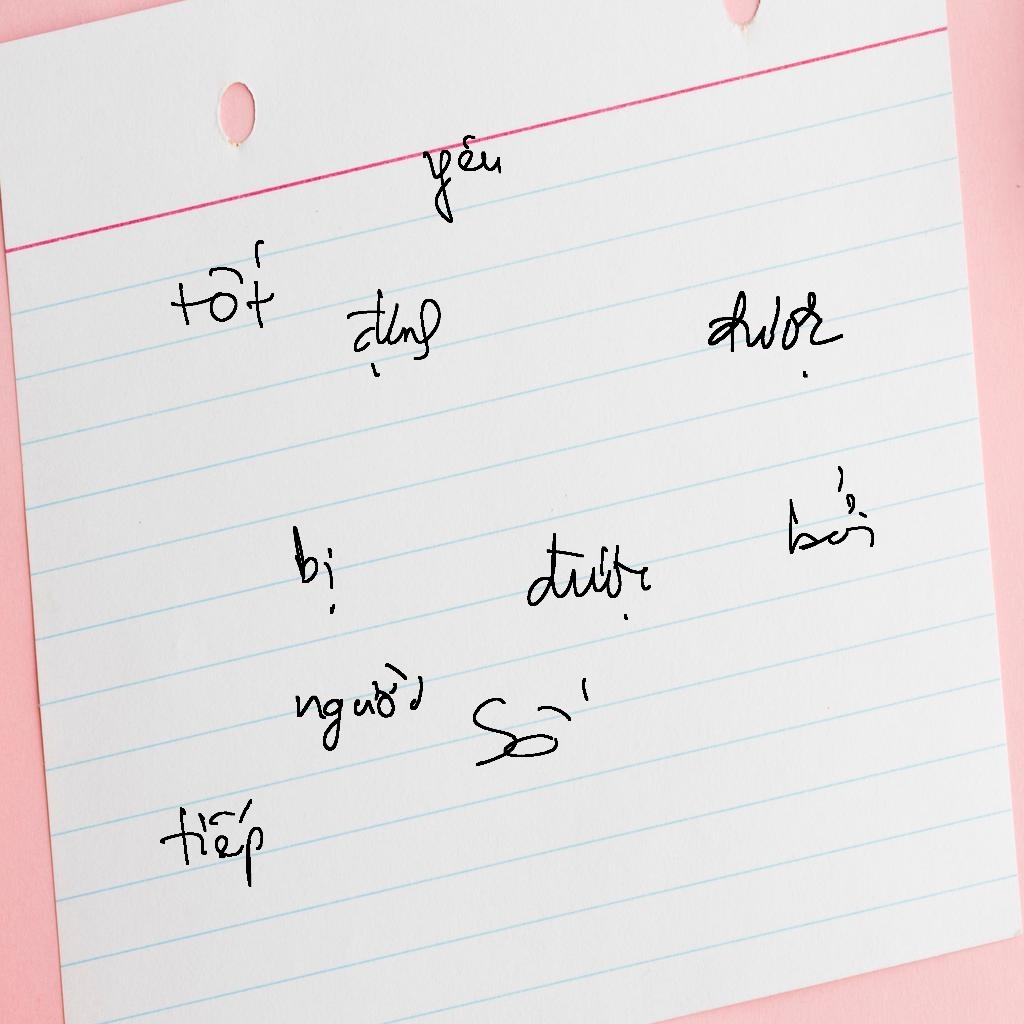 yêu
tốt dụng được
bị được bởi
người số
tiếp